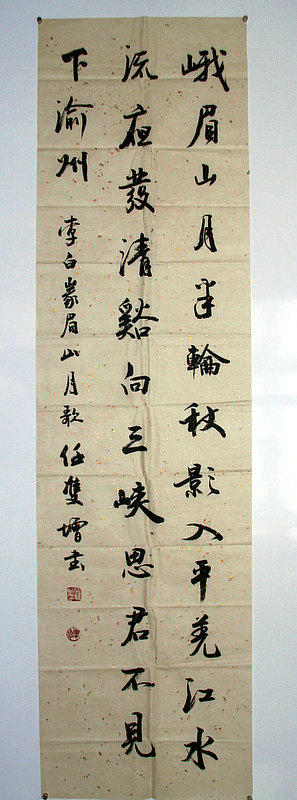 峨眉山月半輪秋影入平羌江水
流夜發清谿向三峽思君不見
下渝州 李白峩眉山月歌 任雙增书